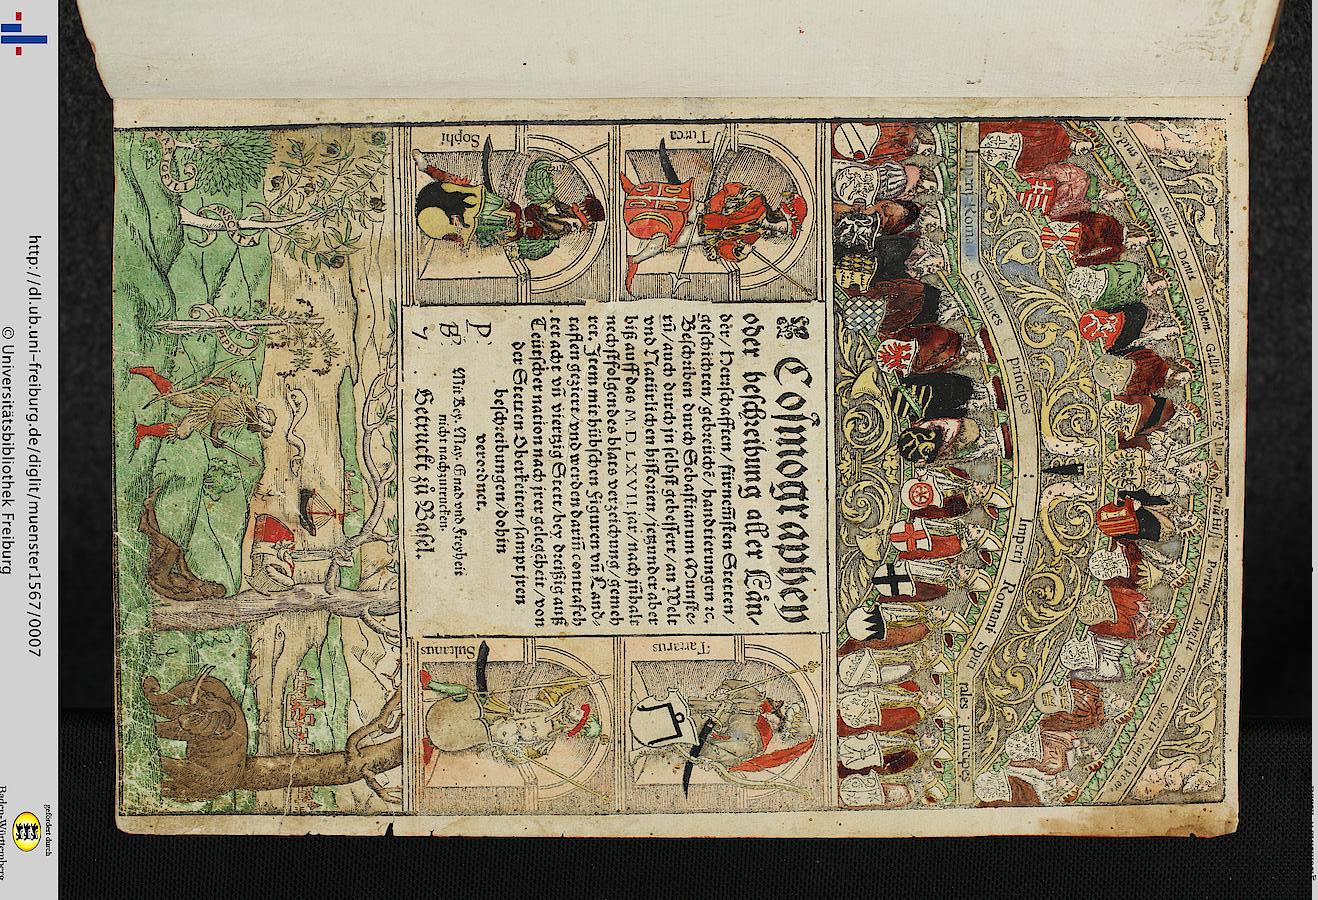 Cosmographey
oder beschreibung aller Län-
der / Herrschafften / fürnemsten Stetten /
geschichten / gebreüche / handtierungen ꝛc.
Beschriben durch Sebastianum Munste-
rū / auch durch jn selbst gebessert / an Welt
vnd Natürlichen historien / jetzunder aber
biß auff das M. D. LXVII. jar / nach jnhalt
nechstfolgendes blats verzeichnuß / gemeh
ret. Item mit hübschen Figuren vñ Land-
taflen geziert / vnd werden dariñ contrafeh
tet acht vñ viertzig Stett / bey dreißig auß
Teütscher nation nach jrer gelegēheit / von
der Stetten Oberkeiten / sampt jren
beschreibungen / dohin
verordnet.
Mit Key. May. Gnad vnd Freyheit
nicht nachzutrucken.
Getruckt zů Basel.
P.
B.
7
Turca
Sophi
Tartarus
Sultanus
Imperij Romani
Seculares principes
Imperij Romani Spiri
tales principes
Sicilie Danus Bohem. Gallus Rom. reg.
Hisp. Portug. Angli Scotus
PIPER
http://dl.ub.uni-freiburg.de/diglit/muenster1567/0007
© Universitätsbibliothek Freiburg
gefördert durch
Baden-Württemberg